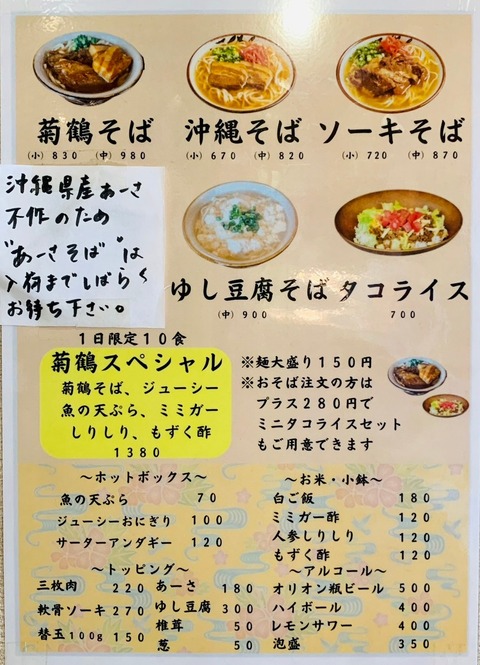 菊鶴そば 沖縄そば ソーキそば
(小) 830 (中) 980 (小) 670 (中) 820 (小) 720 (中) 870
沖縄県産あーさ
不作のため
"あーさそば"は
入荷までしばらく
お待ち下さい。
ゆし豆腐そば タコライス
(中) 900 700
1日限定10食
菊鶴スペシャル
菊鶴そば、ジューシー
魚の天ぷら、ミミガー
しりしり、もずく酢
1380
※麺大盛り150円
※おそば注文の方は
プラス280円で
ミニタコライスセット
もご用意できます
～ホットボックス～
魚の天ぷら 70
ジューシーおにぎり 100
サーターアンダギー 120
～トッピング～
三枚肉 220 あーさ 180
軟骨ソーキ 270 ゆし豆腐 300
替玉100g 150 椎茸 50
葱 50
～お米・小鉢～
白ご飯 180
ミミガー酢 120
人参しりしり 120
もずく酢 120
～アルコール～
オリオン瓶ビール 500
ハイボール 400
レモンサワー 400
泡盛 350